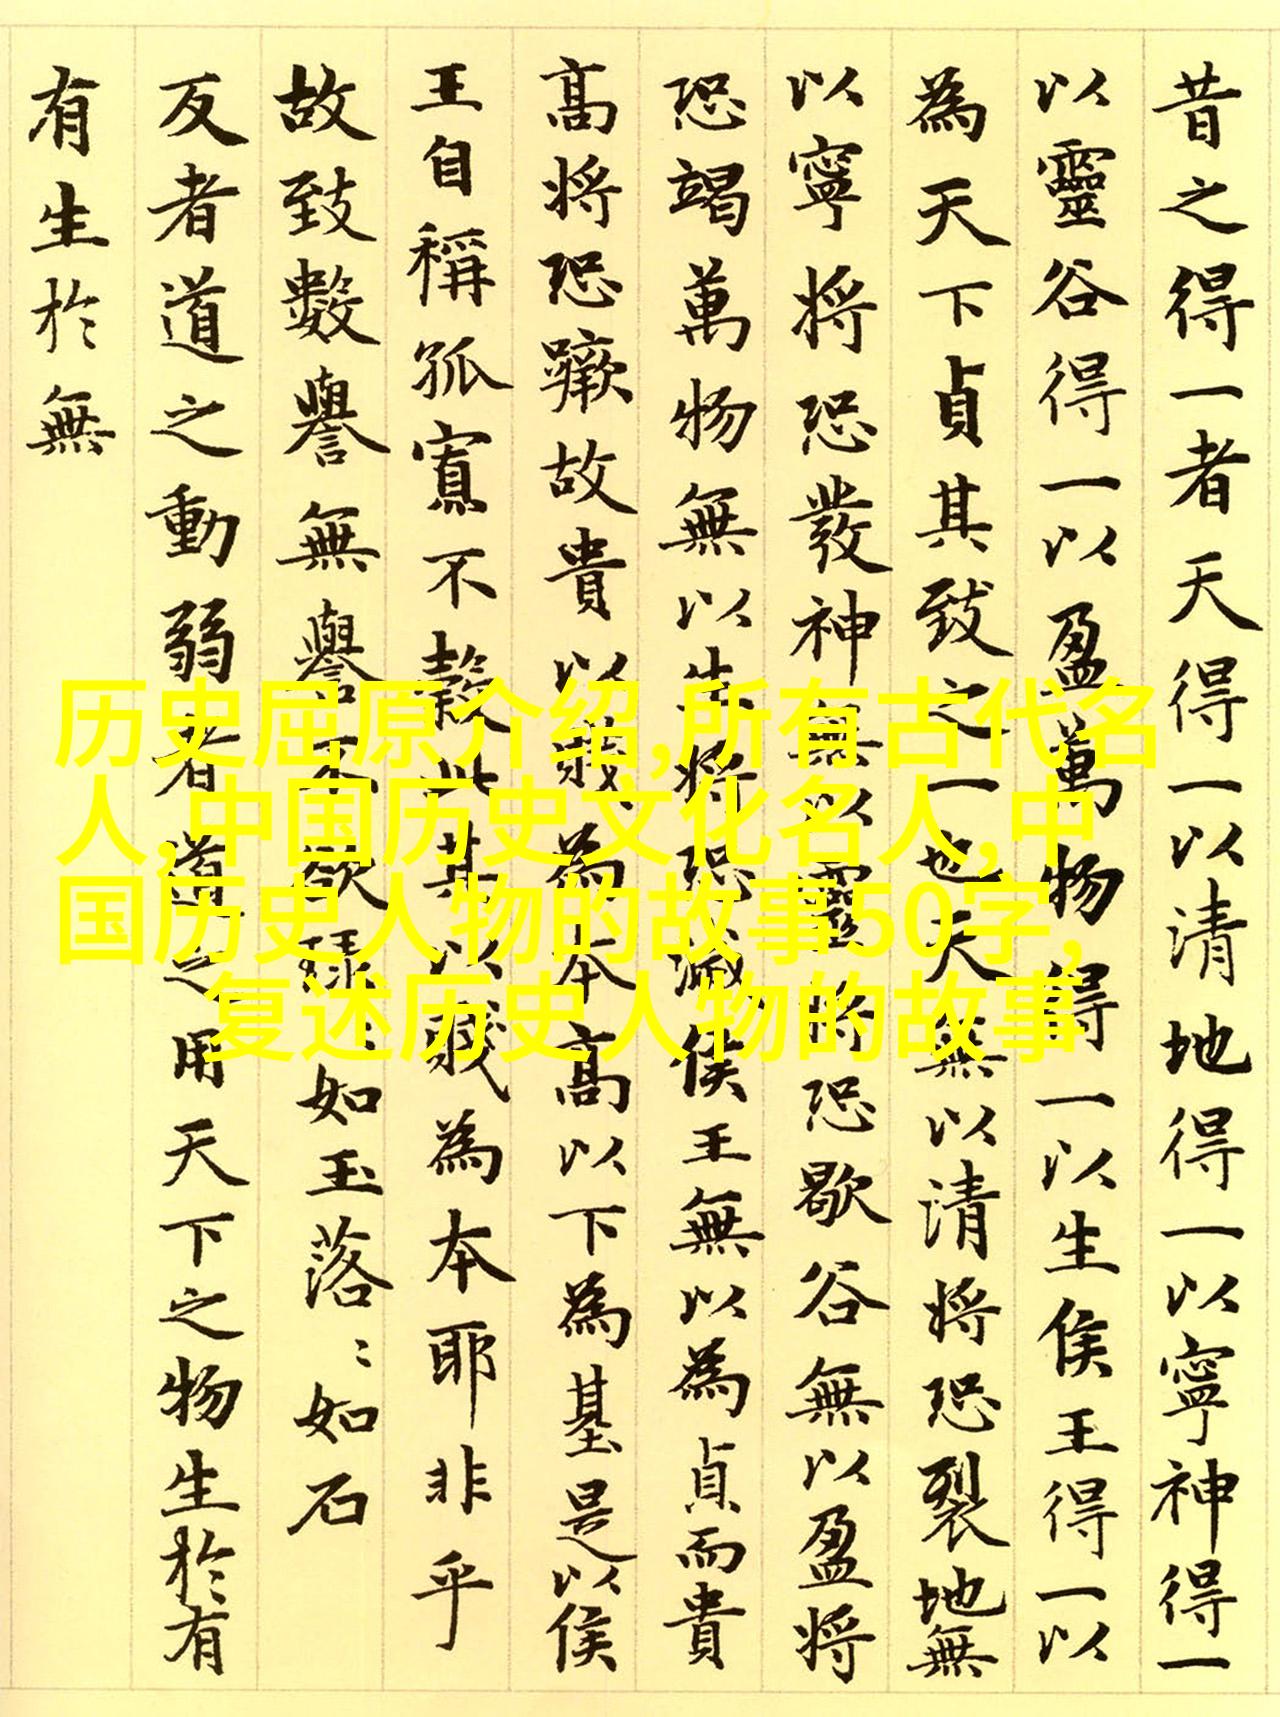 昔之得一者天得一以清地得一以寧神得一
以靈谷得一以盈萬物得一以生侯王得一以
為天下貞其致之一也天無以請將恐裂地無
以寧將恐發神無以靈將恐歇谷無以盈將
恐竭萬物無以生將恐滅侯王無以為貞而貴
高將恐蹶故貴以賤為本高以下為基是以侯
王自稱孤寡不穀此其以賤為本耶非乎
故致數譽無譽不欲琭〻如玉落〻如石
反者道之動弱者道之用天下之物生於有
有生於無
历史屈原介绍,所有古代名
人,中国历史文化名人,中
国历史人物的故事50字,
复述历史人物的故事